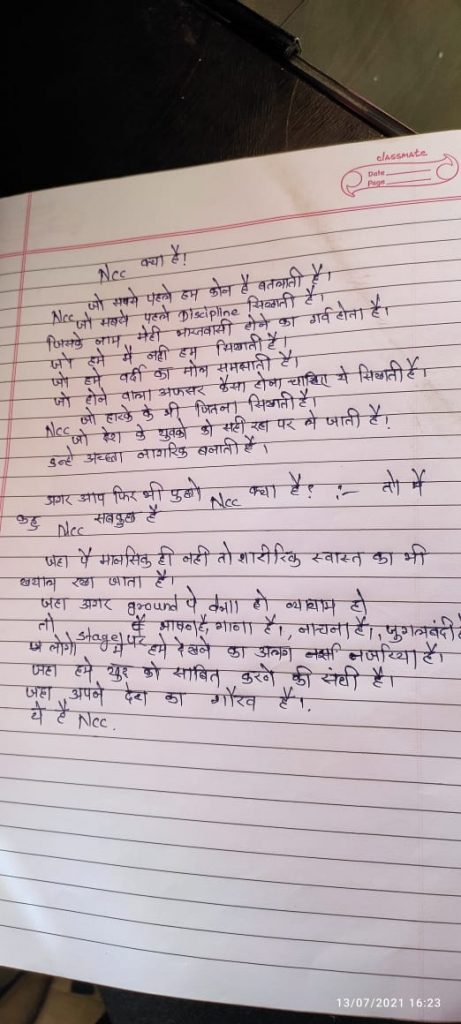 classmate
Date
Page
Ncc क्या है!
Ncc जो सबसे पहले हम कोन है बतलाती है।
जो सबसे पहले Discipline सिखाती है।
जिसके नाम मेही भारतवासी होने का गर्व होता है।
जो हमे मै नही हम सिखाती है।
जो हमे वर्दी का मोल समझाती है।
जो होने वाला अफसर कैसा होना चाहिए ये सिखाती है।
Ncc जो हारके के भी जितना सिखाती है।
जो देश के युवको को सही राह पर ले जाती है!
उन्हे अच्छा नागरिक बनाती है।
अगर आप फिर भी पुछो Ncc क्या है? :- तो मैं
कहु Ncc सबकुछ है
जहा पै मानसिक ही नही तो शारीरिक स्वास्त का भी
खयाल रखा जाता है।
जहा अगर ground पे हो व्यायाम हो
तो stage पर है, गाना है।, नाचना है।, जुगलबंदी है
लोगो मे हमे देखने का अलग नजरिया है।
जहा हमे खुद को साबित करने की संधी है।
जहा अपने देश का गौरव है।.
ये है Ncc.
13/07/2021 16:23